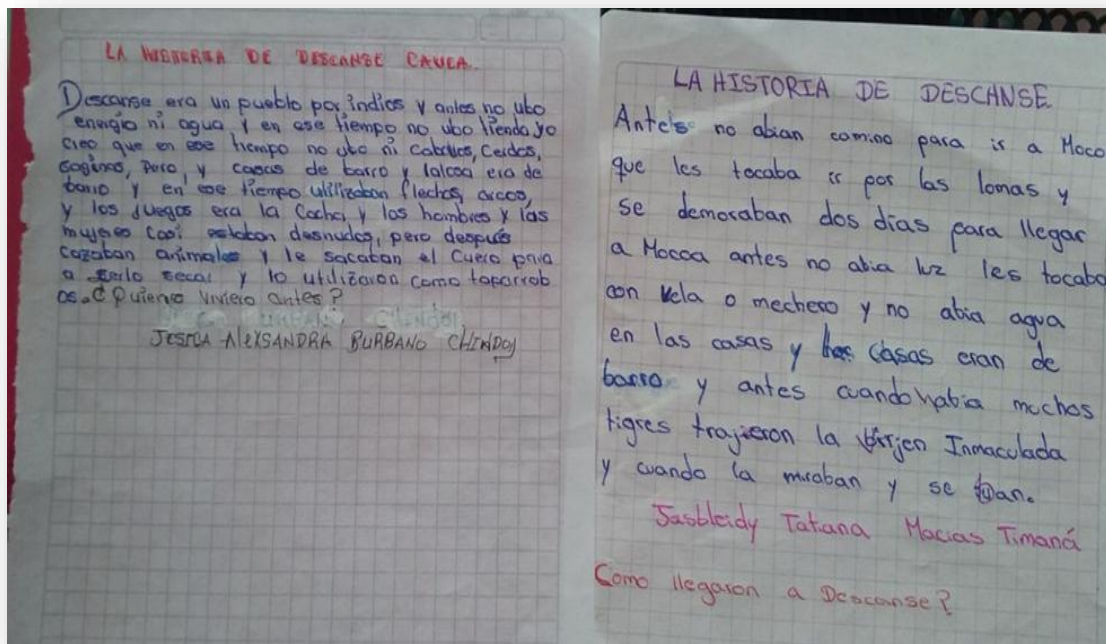 LA HISTORIA DE DESCANSE CAUCA.
Descanse era un pueblo por indios y antes no ubo
energia ni agua, y en ese tiempo no ubo tienda yo
creo que en ese tiempo no ubo ni caballos, Cerdos,
, y casas de barro y era de
barro y en ese tiempo utilizaban flechas, arcos,
y los juegos era la Cocha, y los hombres y las
mujeres casi estaban desnudos, pero después
cazaban animales y le sacaban el cuero para
a secar y lo utilizaron como taparrob
os. ¿Quiene viviero antes?
JESICA ALEXSANDRA BURBANO CHINDOY
LA HISTORIA DE DESCANSE
Antes no abian camino para ir a Moco
que les tocaba ir por las lomas y
se demoraban dos días para llegar
a Mocoa antes no abia luz les tocaba
con vela o mechero y no abia agua
en las casas y casas eran de
barro y antes cuando habia muchos
tigres trajieron la birjen Inmaculada
y cuando la miraban y se iban.
Jasbleidy Tatiana Macias Timaná
Como llegaron a Descanse?